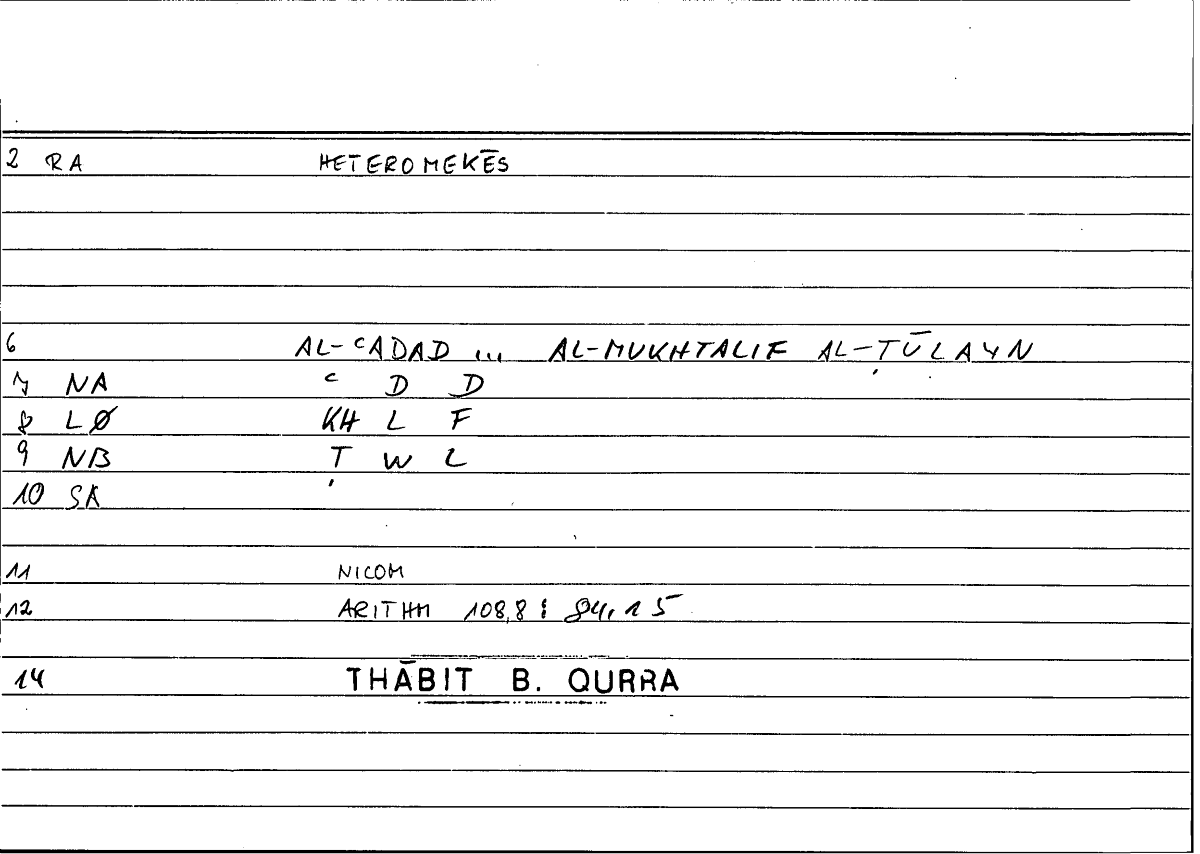 2 RA HETEROMEKĒS
6 AL-ᶜADAD ... AL-MUKHTALIF AL-ṬŪLAYN
7 NA ᶜ D D
8 LØ KH L F
9 NB Ṭ W L
10 SK
11 NICOM
12 ARITHM 108,8 : 84,15
14 THĀBIT B. QURRA